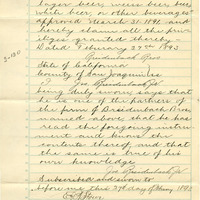 lager beer, weiss beer but
white beer, or other beverages
approved March 31, 1891. and
hereby claim all the privi-
leges granted thereby.
Dated February 27th 1893
Breidenbach Bros
State of California
County of San Joaquin ss
Jos Breidenbach Jr
being duly sworn says that
he is one of the partners of
the firm of Breidenbach Bros,
named above, that he has
read the foregoing instru-
ment and knows the
contents thereof, and that
the same is true of his
own knowledge.
Jos Breidenbach Jr
Subscribed and sworn to
before me this 27 day of February 1893